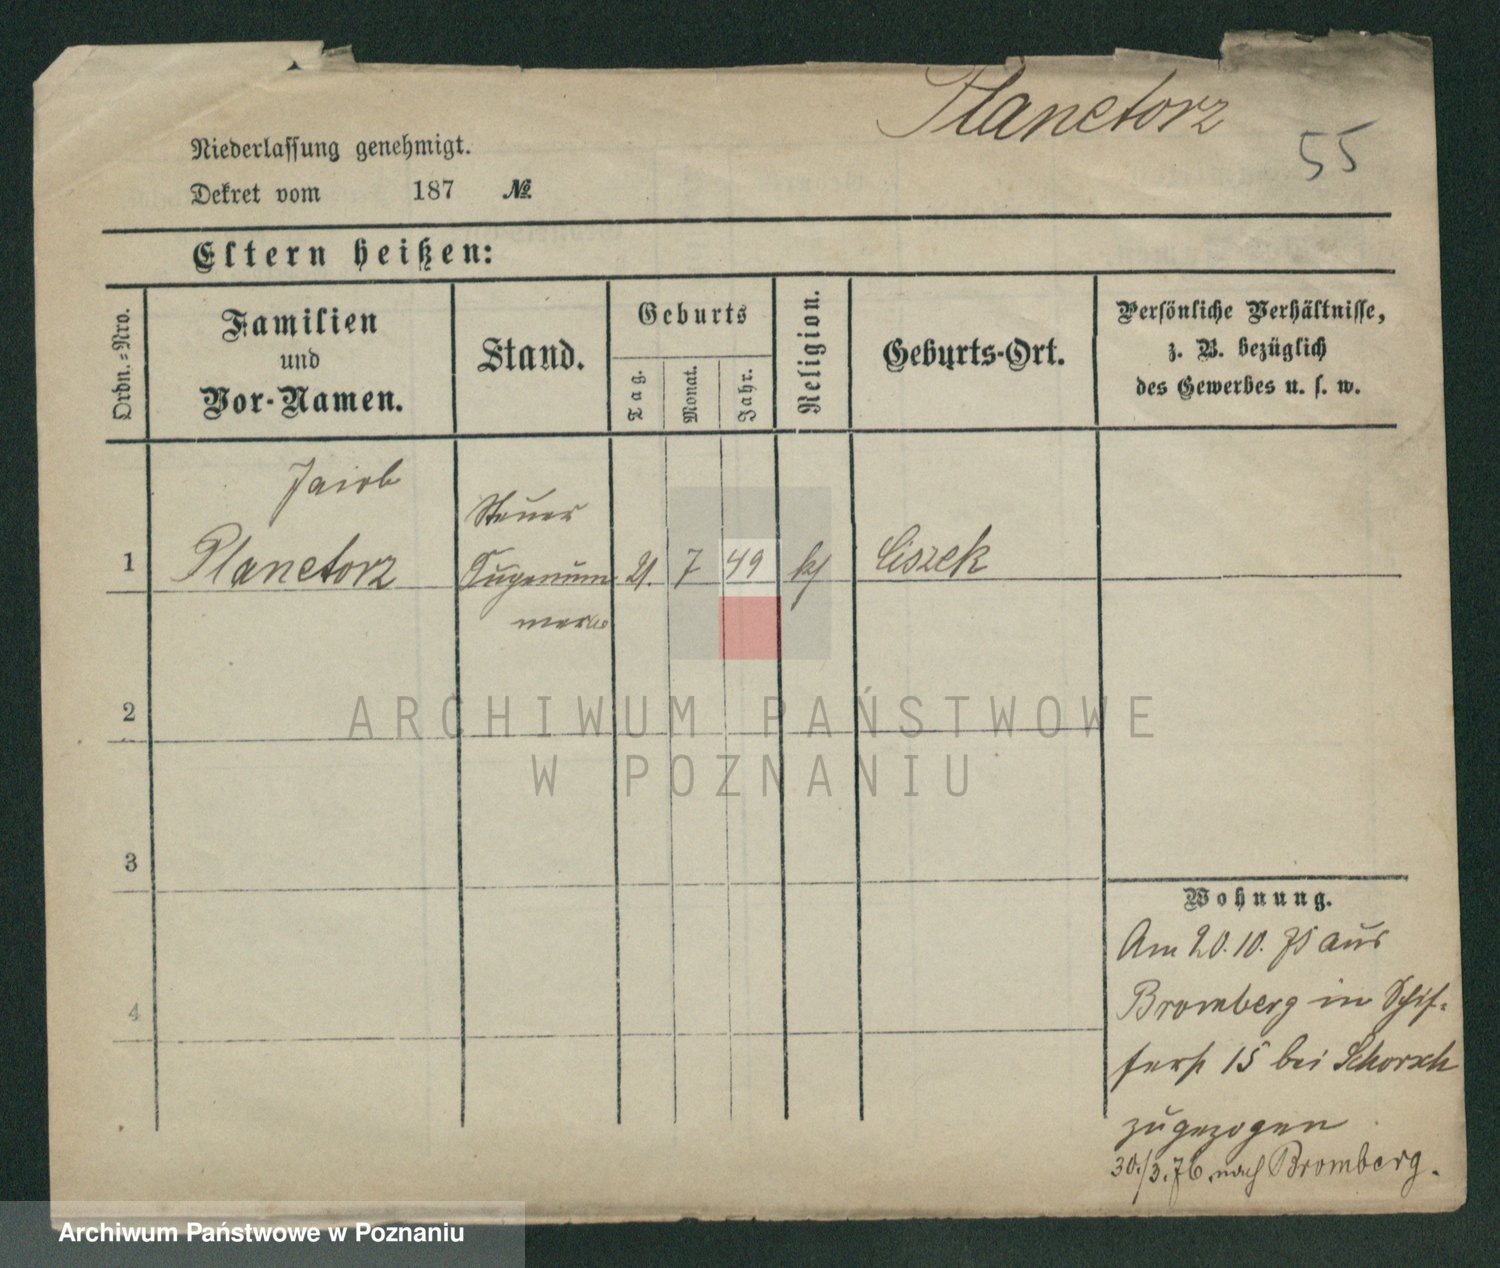 Planetorz
55
Niederlassung genehmigt.
Dekret vom 187 №
Eltern heißen:
Ordn.-Nro.
Familien
und
Vor-Namen.
Stand.
Geburts
Tag.
Monat.
Jahr.
Religion.
Geburts-Ort.
Persönliche Verhältnisse,
z. B. bezüglich
des Gewerbes u. s. w.
Jacob
Steuer
1 Planetorz 21. 7 49 k Ciszek
2
3
4
ARCHIWUM PAŃSTWOWE
W POZNANIU
Wohnung.
Am 20. 10. 75 aus
Bromberg in Schif-
ferst 15 bei Schorsch
zugezogen
30./3. 76. nach Bromberg.
Archiwum Państwowe w Poznaniu